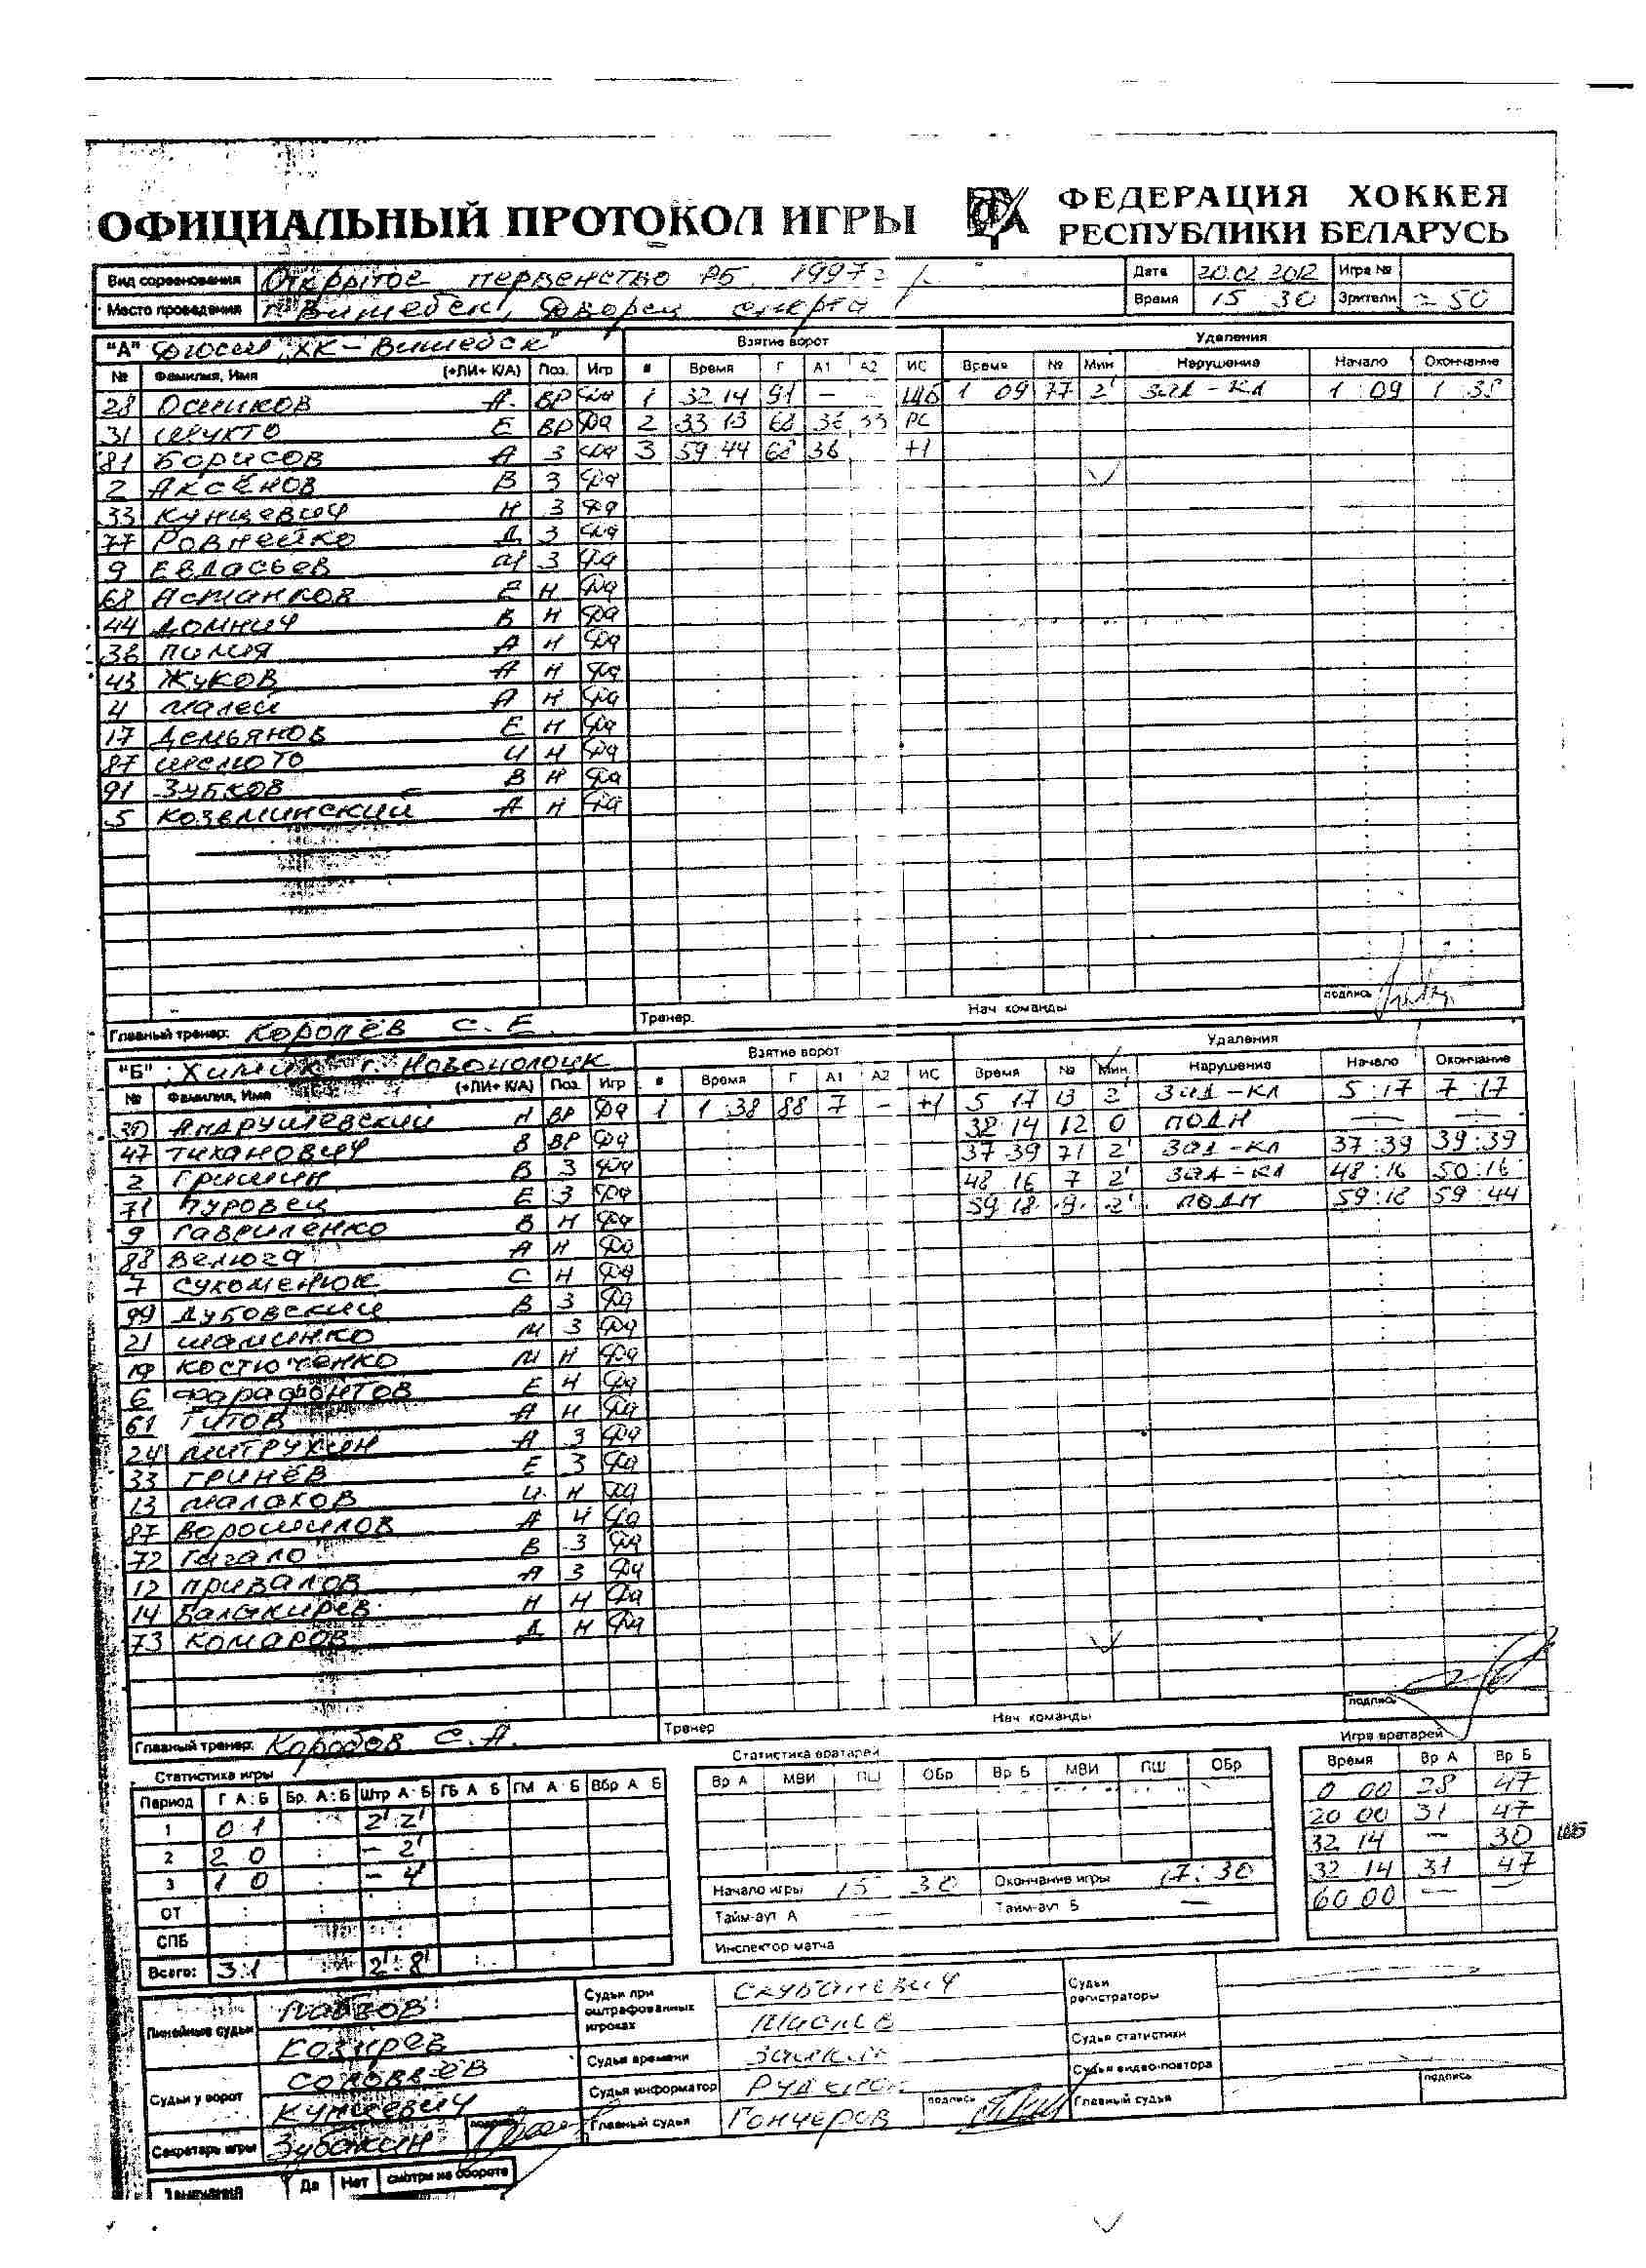 ОФИЦИАЛЬНЫЙ ПРОТОКОЛ ИГРЫ
ФЕДЕРАЦИЯ ХОККЕЯ
РЕСПУБЛИКИ БЕЛАРУСЬ
Вид соревнования Открытое первенство РБ 1997 Дата 20.02.2012 Игра №
Место проведения г. Витебск, Дворец спорта Время 15 30 Зрители ≈ 50
"А" ХК-Витебск" Взятие ворот Удаления
№ Фамилия, Имя (+ЛИ+ К/А) Поз. Игр # Время Г А1 А2 ИС Время № Мин Нарушение Начало Окончание
28 Осипков А. ВР Да 1 32 14 91 – - ШБ 1 09 77 2' ЗАД-КЛ 1 09 1 38
31 Шукто Е ВР Да 2 33 13 68 36 33 РС
81 Борисов А З Да 3 59 44 68 36 +1
2 Аксёнов В З Да
33 Кунцевич Н З Да
77 Ровнейко Д З Да
9 Евдасьев З Да
68 Астанков Е Н Да
44 Домнич В Н Да
36 Пимия А Н Да
43 Жуков А Н Да
4 Малей А Н Да
17 Демьянов Е Н Да
87 Шелюто И Н Да
91 Зубков В Н Да
5 Козьминский А Н Да
Главный тренер: Королёв С. Е. Тренер. Нач команды подпись
"Б" "Химик" г. Новополоцк Взятие ворот Удаления
№ Фамилия, Имя (+ЛИ+ К/А) Поз. Игр # Время Г А1 А2 ИС Время № Мин. Нарушение Начало Окончание
30 Андрушевский Н ВР Да 1 1:38 88 7 – +1 5 17 13 2' ЗАД-КЛ 5:17 7:17
47 Тиханович В ВР Да 32 14 12 0 ПОДН –
2 Гришин В З Да 37 39 71 2' ЗАД-КЛ 37:39 39:39
71 Пуровец Е З Да 48 16 7 2' ЗАД-КЛ 48:16 50:16
9 Гавриленко В Н Да 59 18 9 2' ПОДН 59:18 59:44
88 Велюга А Н Да
7 Сухоменюк С Н Да
99 Дубовский В З Да
21 Шаминко М З Да
19 Костюченко М Н Да
6 Фарафонтов Е Н Да
61 Титов А Н Да
24 Митрухин А З Да
33 Гринёв Е З Да
13 Малахов И Н Да
87 Ворошилов А Н Да
72 Гагало В З Да
12 Привалов А З Да
14 Балакирев Н Н Да
73 Комаров Д Н Да
Главный тренер: Коробов С.А. Тренер Нач команды подпись
Статистика игры Статистика вратарей Игра вратарей
Период Г А:Б Бр. А:Б Штр А Б ГБ А Б ГМ А Б Вбр А Б Вр А МВИ ПШ ОБр Вр Б МВИ ПШ ОБр Время Вр А Вр Б
1 0:1 2':2' 0 00 28 47
2 2 0 – 2' 20 00 31 47
3 1 0 – 4 32 14 – 30 ШБ
ОТ 32 14 31 47
СПБ 60 00 –
Всего: 3 1 2':8'
Начало игры 15 30 Окончание игры 17:30
Тайм-аут А – Тайм-аут Б –
Инспектор матча
Линейные судьи Козырев
Судьи у ворот Соловьёв Кунцевич
Секретарь игры Зубакин подпись
Судьи при оштрафованных игроках Скубаневич
Судья времени
Судья информатор
Главный судья Гончеров подпись
Судьи регистраторы
Судья статистики
Судья видео-повтора
Главный судья подпись
Замечания Да Нет смотри на обороте